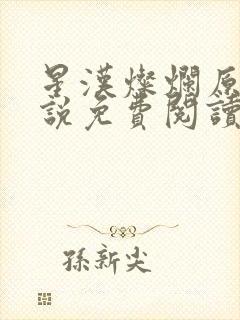 星漢燦爛原
說免費閱讀
孫新尖